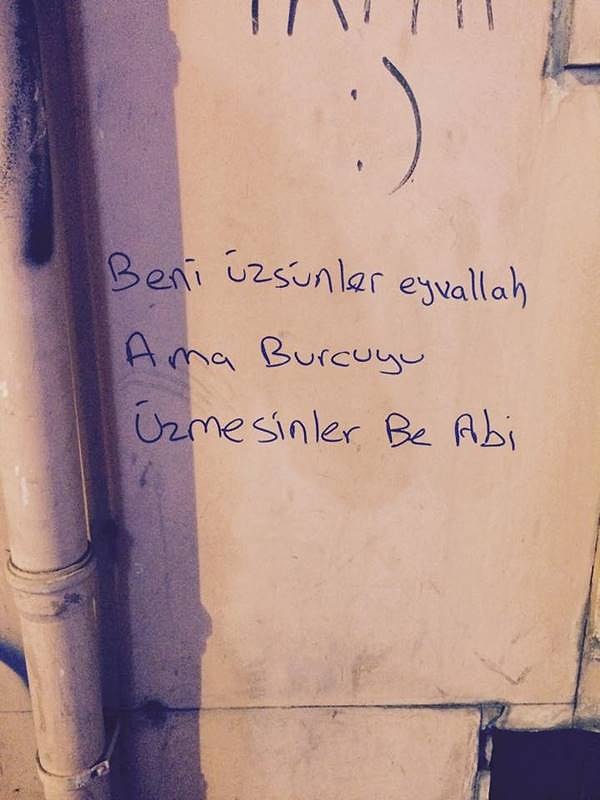 :)
Beni üzsünler eyvallah
Ama Burcuyu
Üzmesinler Be Abi